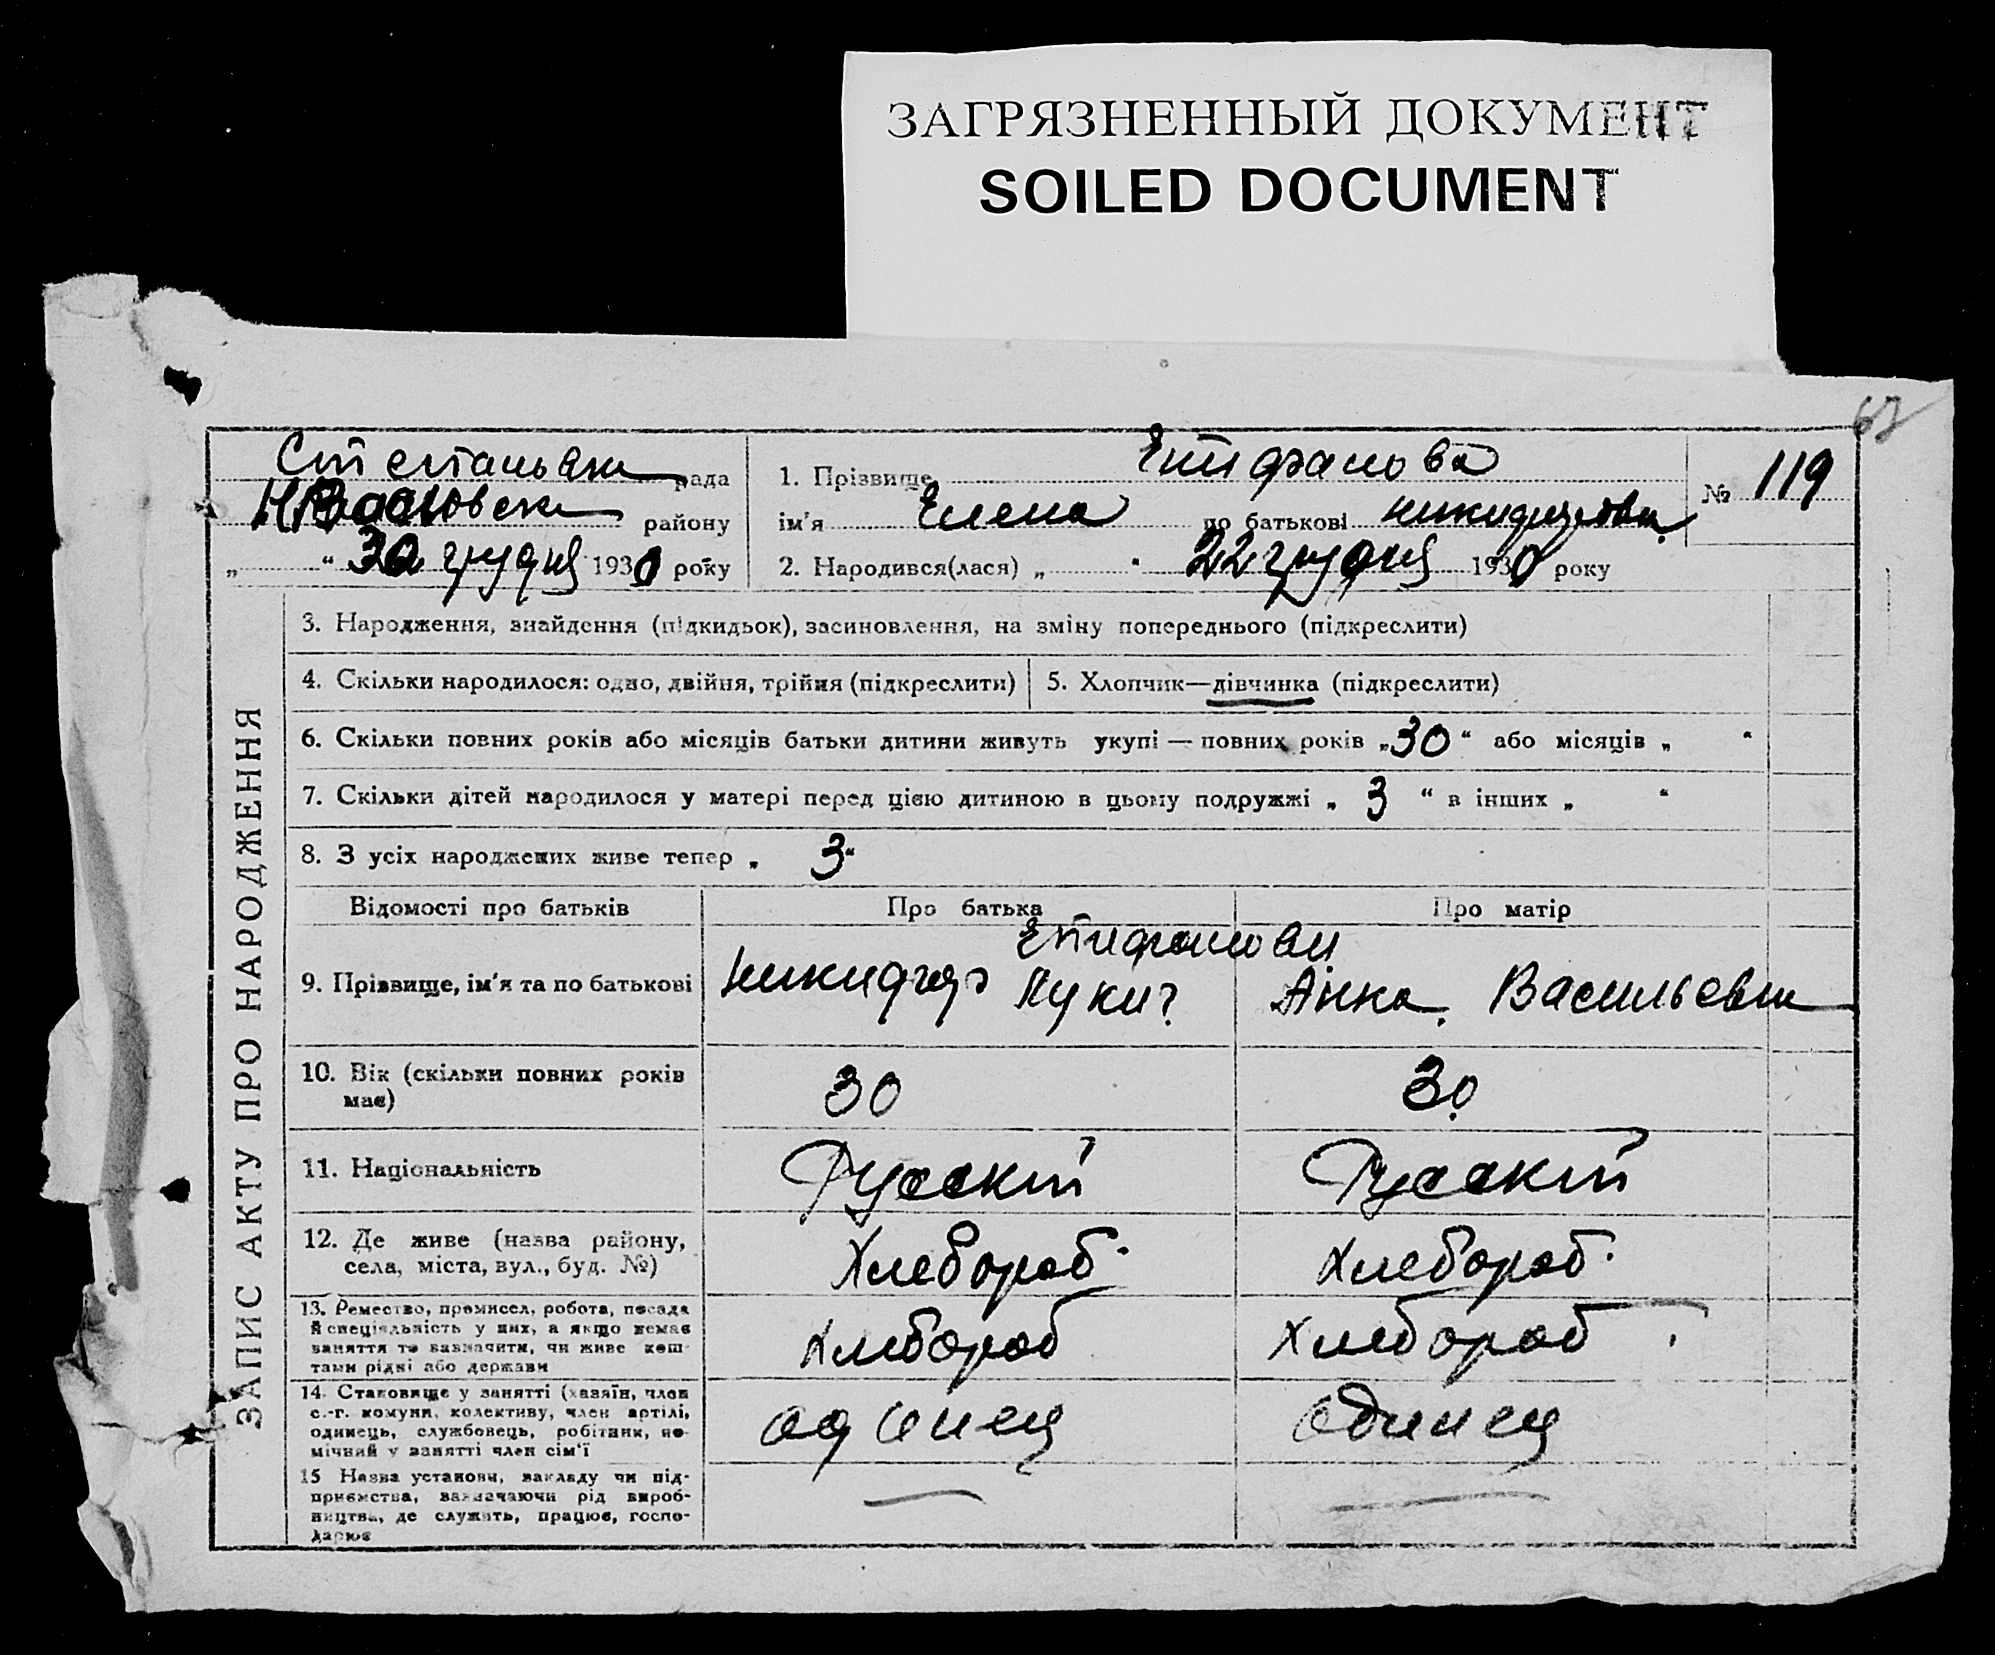 ЗАГРЯЗНЕННЫЙ ДОКУМЕНТ
SOILED DOCUMENT
рада
району
„ “ 30 грудня 1930 року
1. Прізвище Епифанова
ім'я Елена по батькові
№ 119
2. Народився(лася) „ “ 22 грудня 1930 року
ЗАПИС АКТУ ПРО НАРОДЖЕННЯ
3. Народження, знайдення (підкидьок), засиновлення, на зміну попереднього (підкреслити)
4. Скільки народилося: одно, двійня, трійня (підкреслити)
5. Хлопчик—дівчинка (підкреслити)
6. Скільки повних років або місяців батьки дитини живуть укупі — повних років „30“ або місяців „ “
7. Скільки дітей народилося у матері перед цією дитиною в цьому подружжі „ 3 “ в інших „ “
8. З усіх народжених живе тепер „ 3“
Відомості про батьків
Про батька
Про матір
9. Прізвище, ім'я та по батькові
Епифанови
Никифор Лукич
Анна Васильевна
10. Вік (скільки повних років
має)
30
30
11. Національність
Русский
Русский
12. Де живе (назва району,
села, міста, вул., буд. №)
Хлебороб
Хлебороб
13. Ремество, промисел, робота, посада
й спеціяльність у них, а якщо немає
заняття то зазначити, чи живе кош-
тами рідні або держави
Хлебороб
Хлебороб
14. Становище у занятті (хазяїн, член
с.-г. комуни, колективу, член артілі,
одинець, службовець, робітник, по-
мічний у занятті член сім'ї
одинец
одинец
15 Назва установи, закладу чи під-
приємства, зазначаючи рід вироб-
ництва, де служать, працює, госпо-
дарює